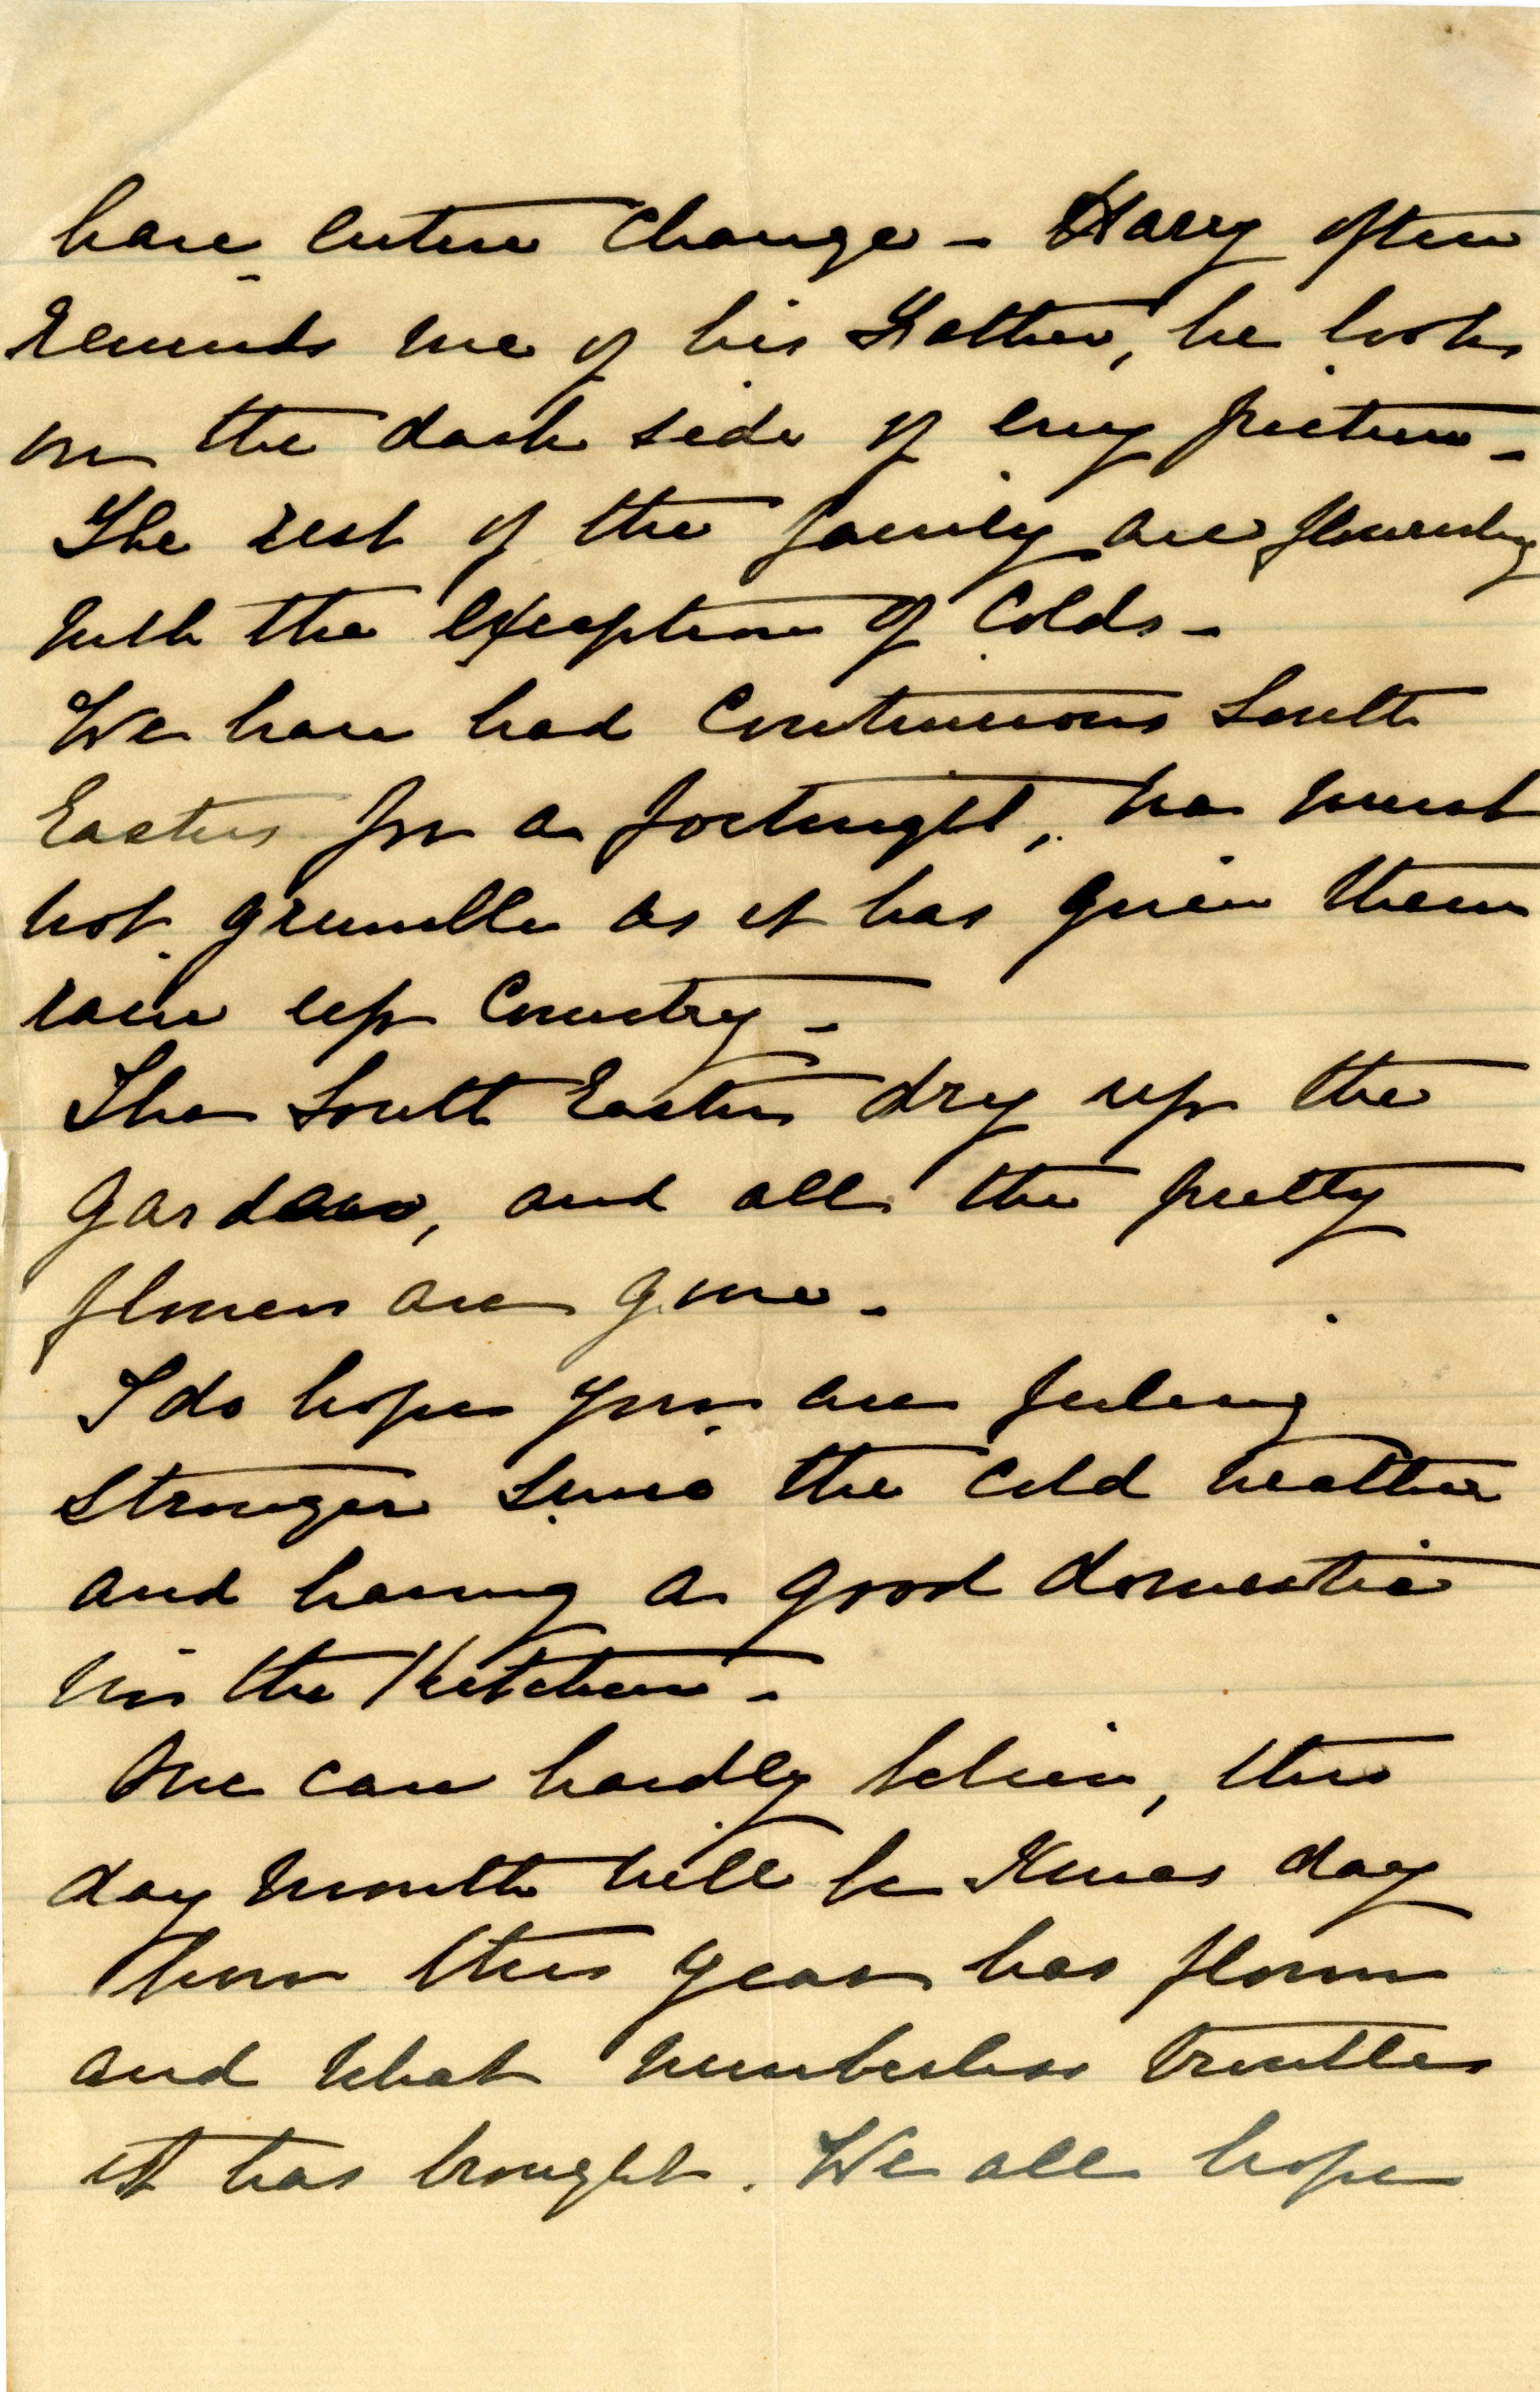 have entire change - Harry often
reminds me of his Father, he looks
on the dark side of every picture -
The rest of the family are flourishing
with the exception of Colds -
We have had Continuous South
Easters for a fortnight, we must
not grumble as it has given them
rain up Country -
The South Easters dry up the
gardens, and all the pretty
flowers are gone -
I do hope you are feeling
stronger since the cold weather
and having a good domestic
in the Kitchen -
One can hardly believe, this
day month will be Xmas day
how this year has flown
and what numberless troubles
it has brought. We all hope